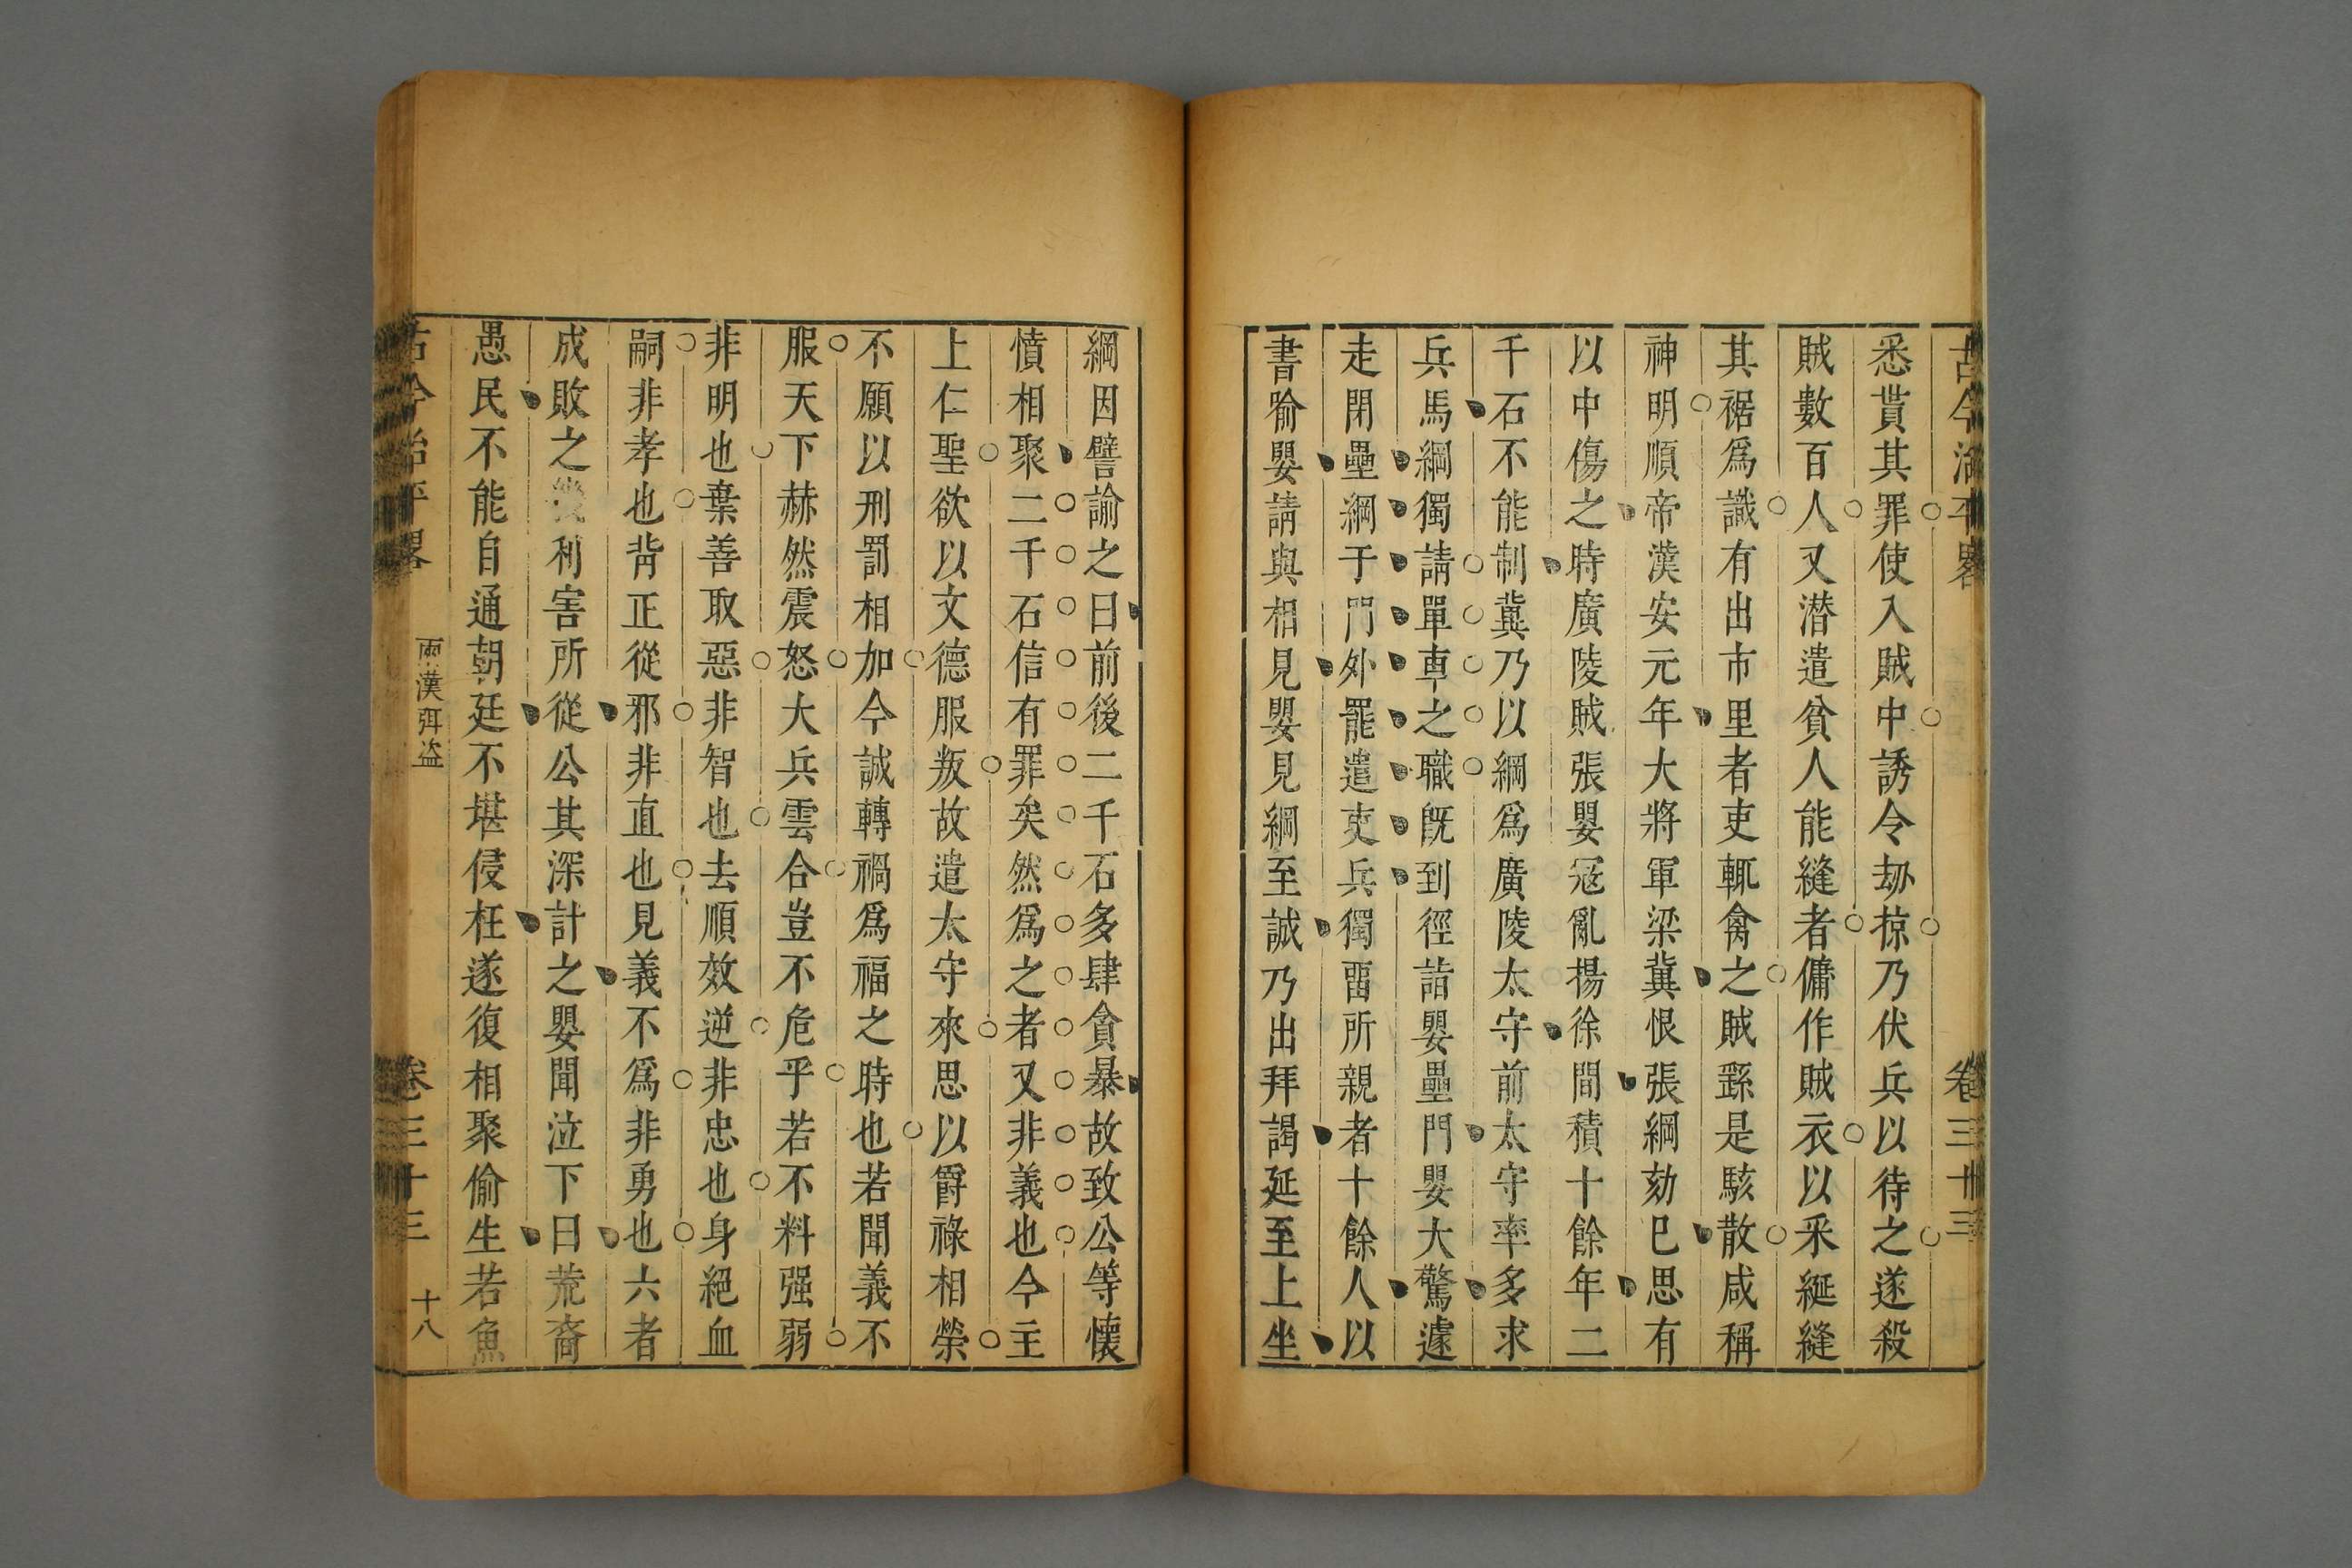 古今治平畧 卷三十三
悉貰其罪使入賊中誘令劫掠乃伏兵以待之遂殺
賊數百人又潜遣貧人能縫者傭作賊衣以采綖縫
其裾爲識有出市里者吏輒禽之賊繇是駭散咸稱
神明順帝漢安元年大將軍梁冀恨張綱劾巳思有
以中傷之時廣陵賊張嬰冦亂揚徐間積十餘年二
千石不能制冀乃以綱爲廣陵太守前太守率多求
兵馬綱獨請單車之職旣到徑詣嬰壘門嬰大驚遽
走閉壘綱于門外罷遣吏兵獨畱所親者十餘人以
書喻嬰請與相見嬰見綱至誠乃出拜謁延至上坐
綱因譬諭之曰前後二千石多肆貪暴故致公等懷
憤相聚二千石信有罪矣然爲之者又非義也今主
上仁聖欲以文德服叛故遣太守來思以爵祿相榮
不願以刑罰相加今誠轉禍爲福之時也若聞義不
服天下赫然震怒大兵雲合豈不危乎若不料强弱
非明也棄善取惡非智也去順效逆非忠也身絕血
嗣非孝也背正從邪非直也見義不爲非勇也六者
成敗之幾利害所從公其深計之嬰聞泣下曰荒裔
愚民不能自通朝廷不堪侵枉遂復相聚偷生若魚
古今治平畧 兩漢弭盜 卷三十三 十八